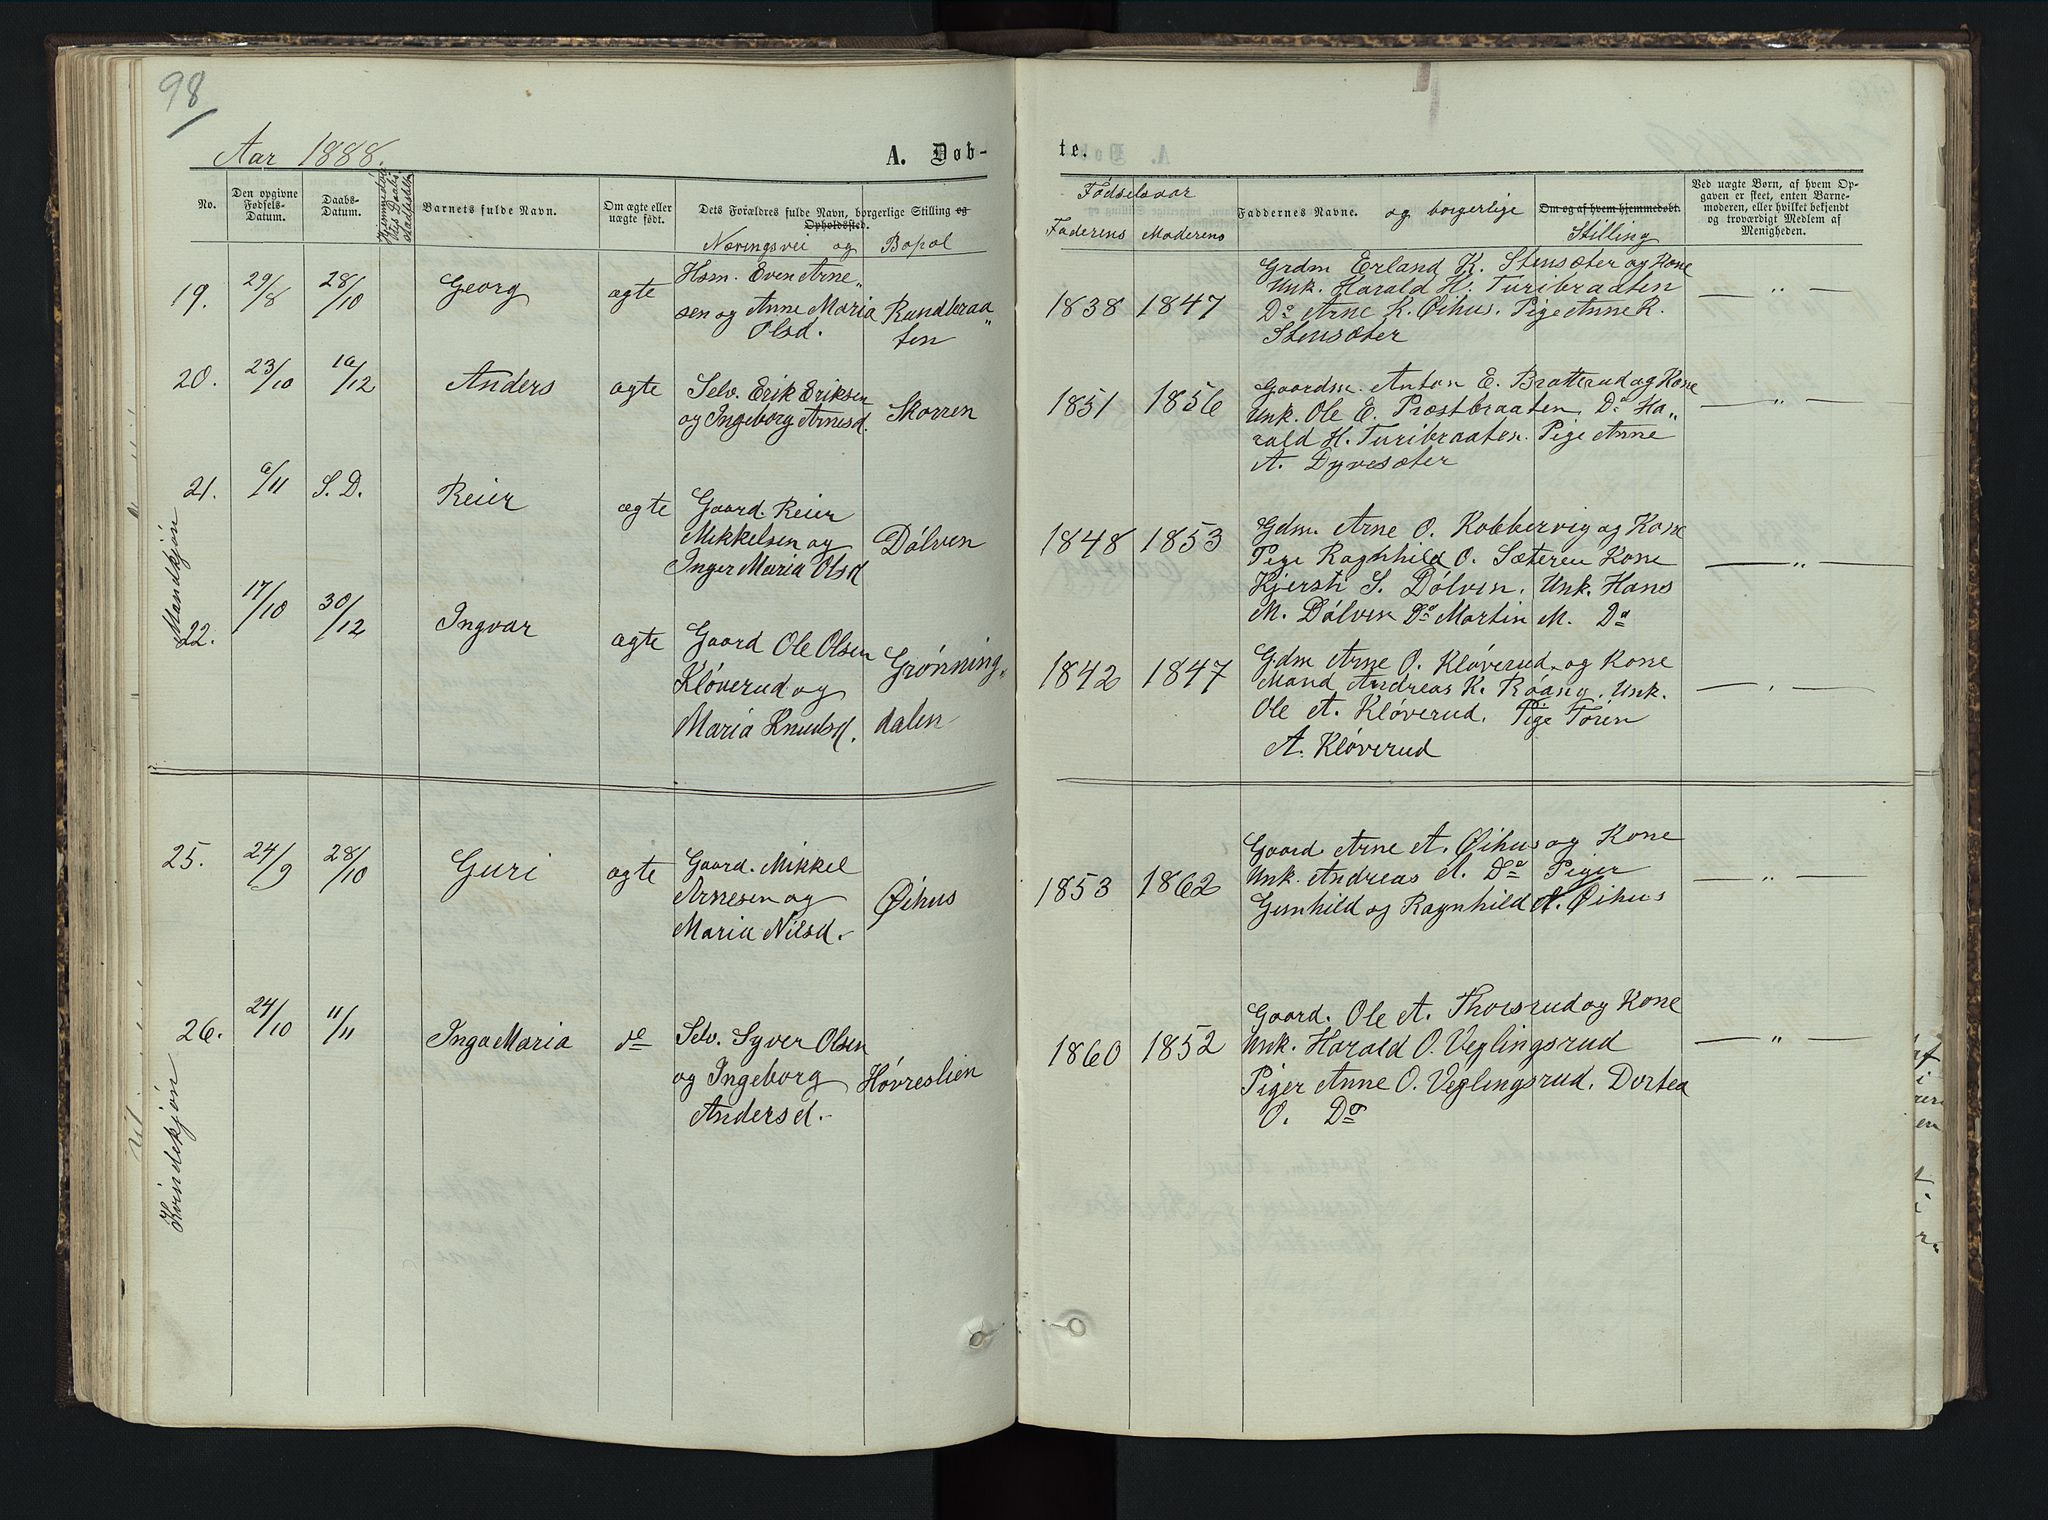 98
Aar 1888.
A. Døb-
te.
No.
Den opgivne Fødsels-Datum.
Daabs-Datum.
Barnets fulde Navn.
Om ægte eller uægte født.
Dets Forældres fulde Navn, borgerlige Stilling og Opholdssted.
Næringsvei og Bopæl
Fødselsaar
Faderens
Moderens
Faddernes Navne.
og borgerlige
Om og af hvem hjemmedøbt.
Stilling
Ved uægte Børn, af hvem Op-
gaven er skeet, enten Barne-
moderen, eller hvilket bekjendt
og troværdigt Medlem af
Menigheden.
Mandkjøn
19.
29/8
28/10
Georg
ægte
Hsm. Even Arne„
sen og Anne Maria
Olsd.
Rundbraa„
ten
1838
1847
Grdm Erland K. Stensæter og Kone
Unk. Harald H. Turibraaten
Do Arne K. Øihus. Pige Anne K.
Stensæter
— „ —
20.
23/10
16/12
Anders
ægte
Selv. Erik Eriksen
og Ingeborg Arnesd.
Skorren
1851
1856
Gaardm. Anton E. Bratterud og Kone
Unk. Ole E. Præstbraaten. Do Ha„
rald H. Turibraaten. Pige Anne
A. Dyvesæter
— „ —
21.
6/11
S. D.
Reier
ægte
Gaard. Reier
Mikkelsen og
Inger Maria Olsd
Dølven
1848
1853
Gdm. Arne O. Kobbervig og Kone
Pige Ragnhild O. Sæteren Kone
Kjersti S. Dølven. Unk. Hans
M. Dølven Do Martin M. Do
— „ —
22.
17/10
30/12
Ingvar
ægte
Gaard Ole Olsen
Kløverud og
Maria Knudsd.
Grønning„
dalen
1842
1847
Gdm Arne O. Kløverud og Kone
Mand Andreas K. Røang. Unk.
Ole A. Kløverud. Pige Tøren
A. Kløverud
— „ —
Kvindekjøn
25.
24/9
28/10
Guri
ægte
Gaard. Mikkel
Arnesen og
Maria Nilsd.
Øihus
1853
1862
Gaard. Arne A. Øihus og Kone
Unk. Andreas A. Do Piger
Gunhild og Ragnhild A. Øihus
— „ —
26.
24/10
11/11
Inga Maria
do
Selv. Syver Olsen
og Ingeborg
Andersd.
Høvreslien
1860
1852
Gaard. Ole A. Thorsrud og Kone
Unk. Harald O. Veglingsrud
Piger Anne O. Veglingsrud. Dortea
O. Do
— „ —